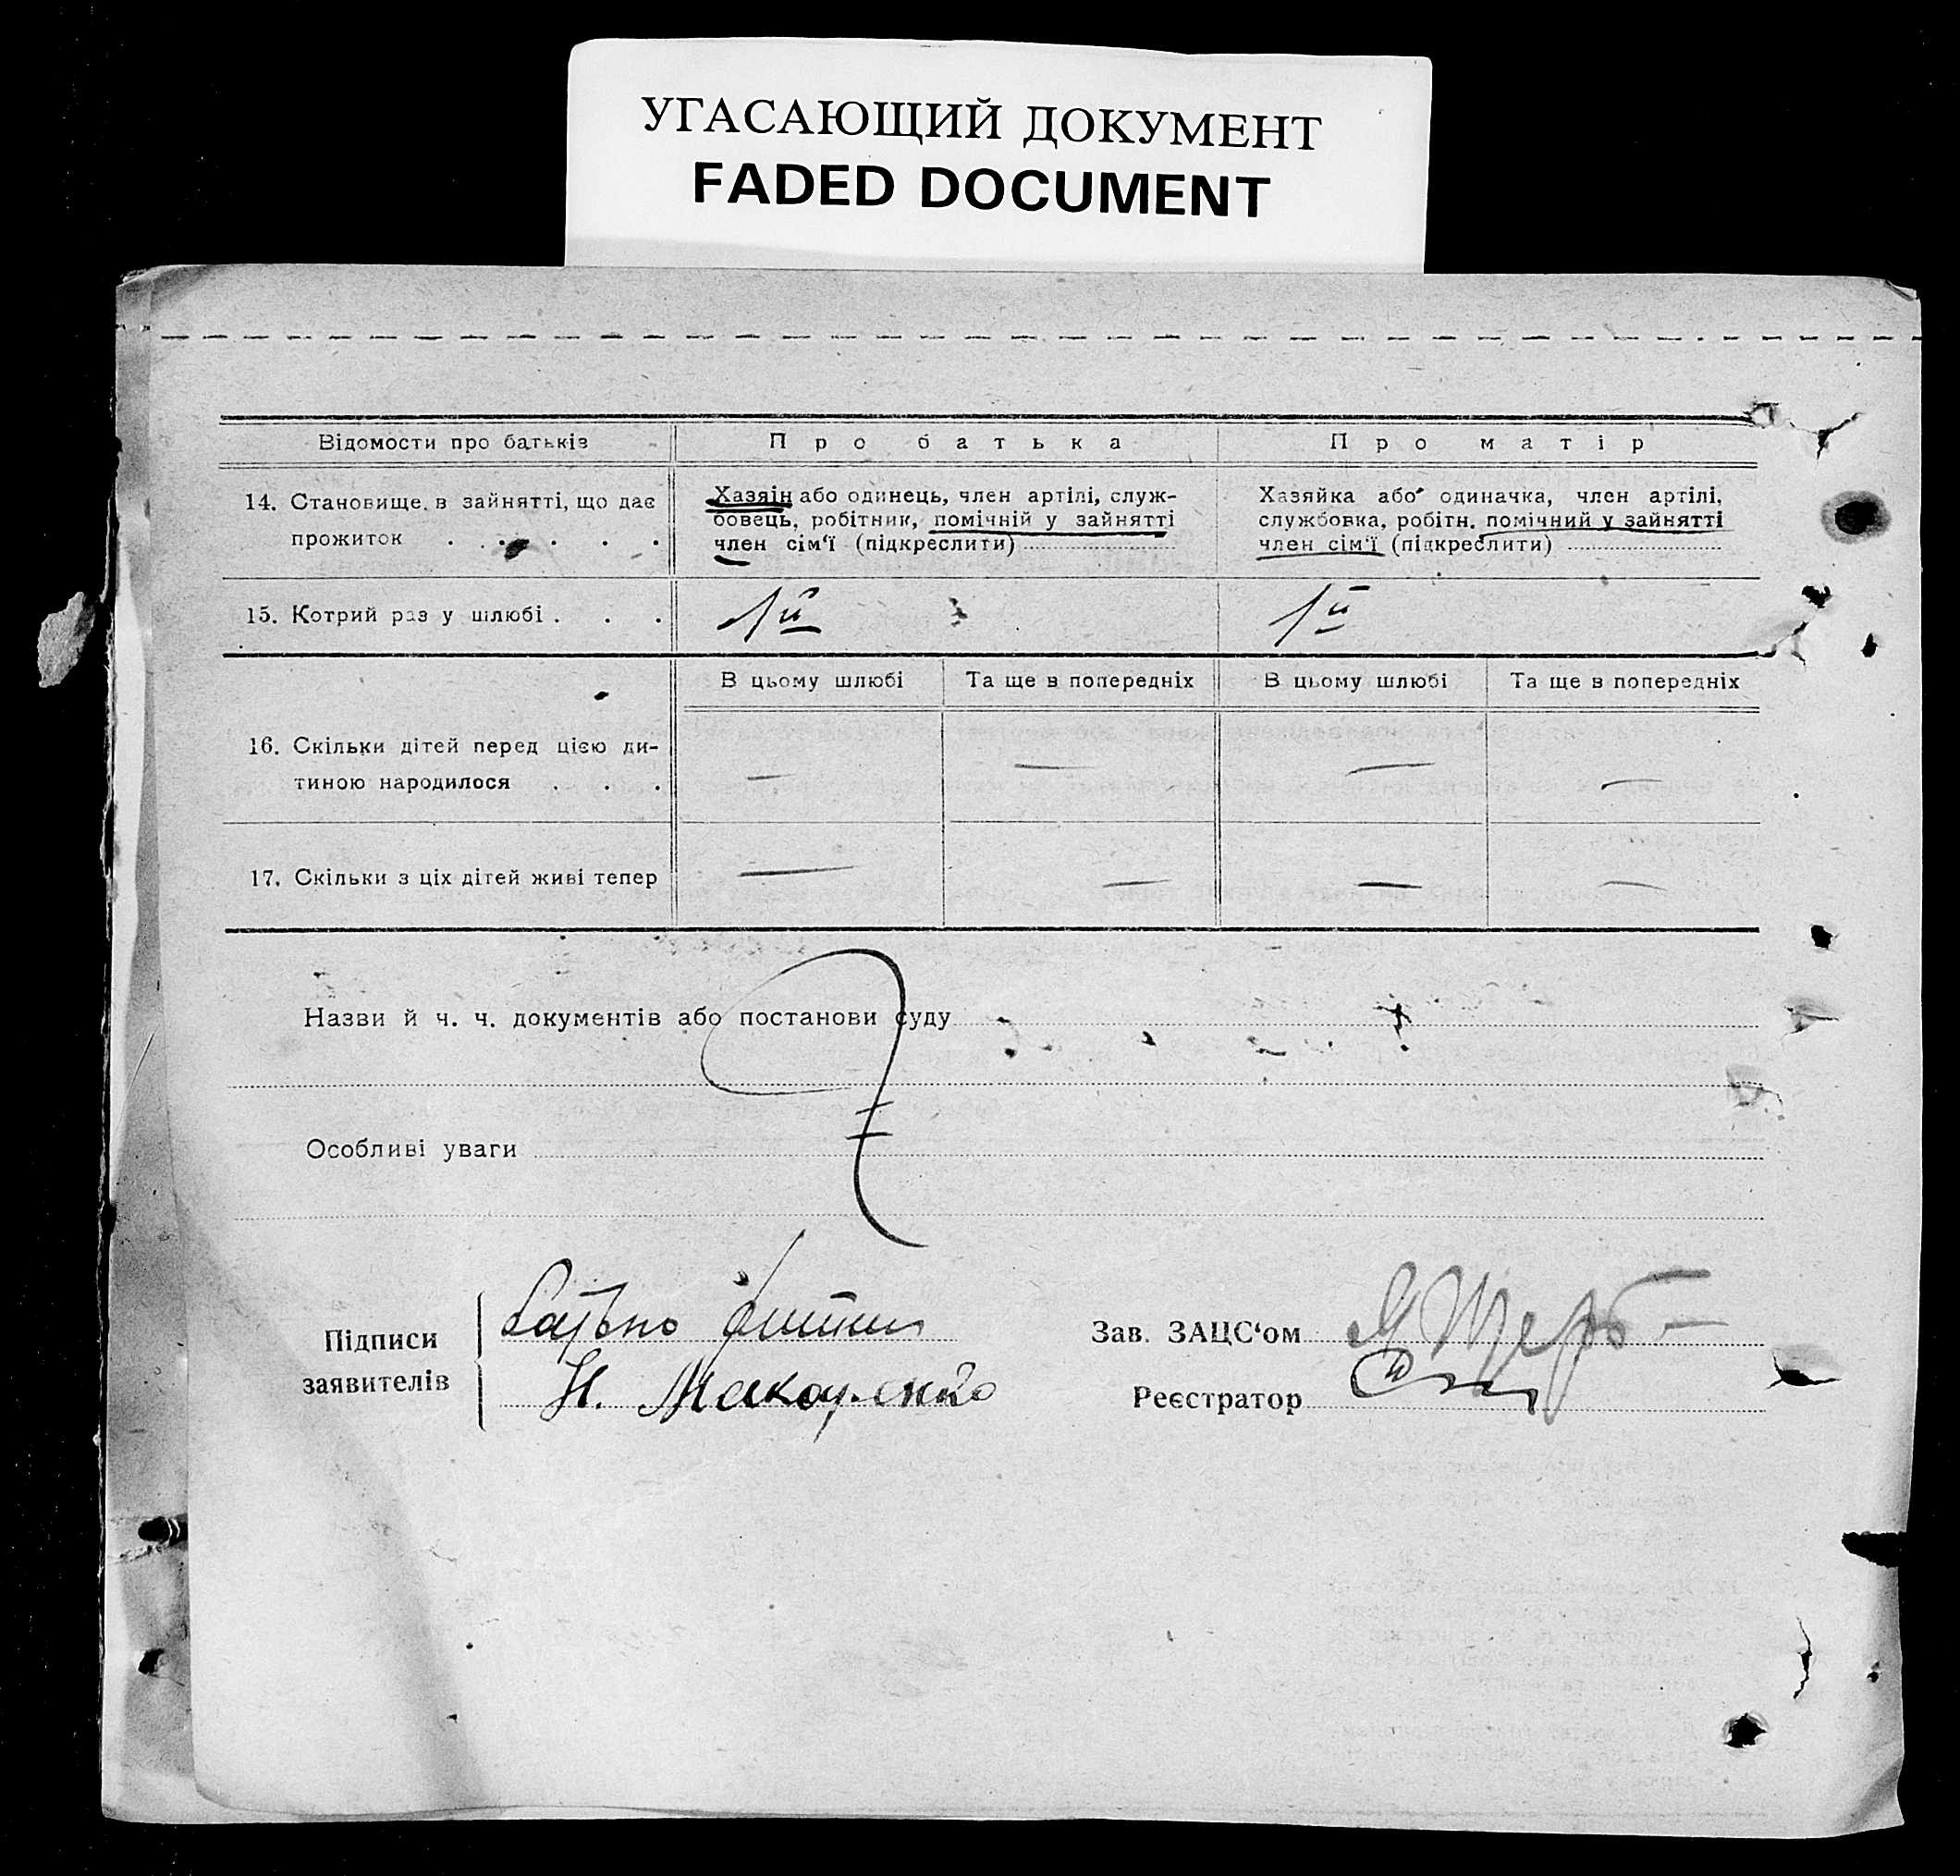 УГАСАЮЩИЙ ДОКУМЕНТ
FADED DOCUMENT
Відомости про батьків
Про батька
Про матір
14. Становище в зайнятті, що дає
прожиток . . . . . .
Хазяін або одинець, член артілі, служ-
бовець, робітник, помічній у зайнятті
член сім‘ї (підкреслити)
Хазяйка або одиначка, член артілі,
службовка, робітн. помічний у зайнятті
член сім‘ї (підкреслити)
15. Котрий раз у шлюбі . . .
1й
1й
В цьому шлюбі
Та ще в попередніх
В цьому шлюбі
Та ще в попередніх
16. Скільки дітей перед цією ди-
тиною народилося . . .
— — — —
17. Скільки з ціх дітей живі тепер
— — — —
Назви й ч. ч. документів або постанови суду
Особливі уваги
Підписи
заявителів
Н. Макаренко
Зав. ЗАЦС‘ом
Реєстратор